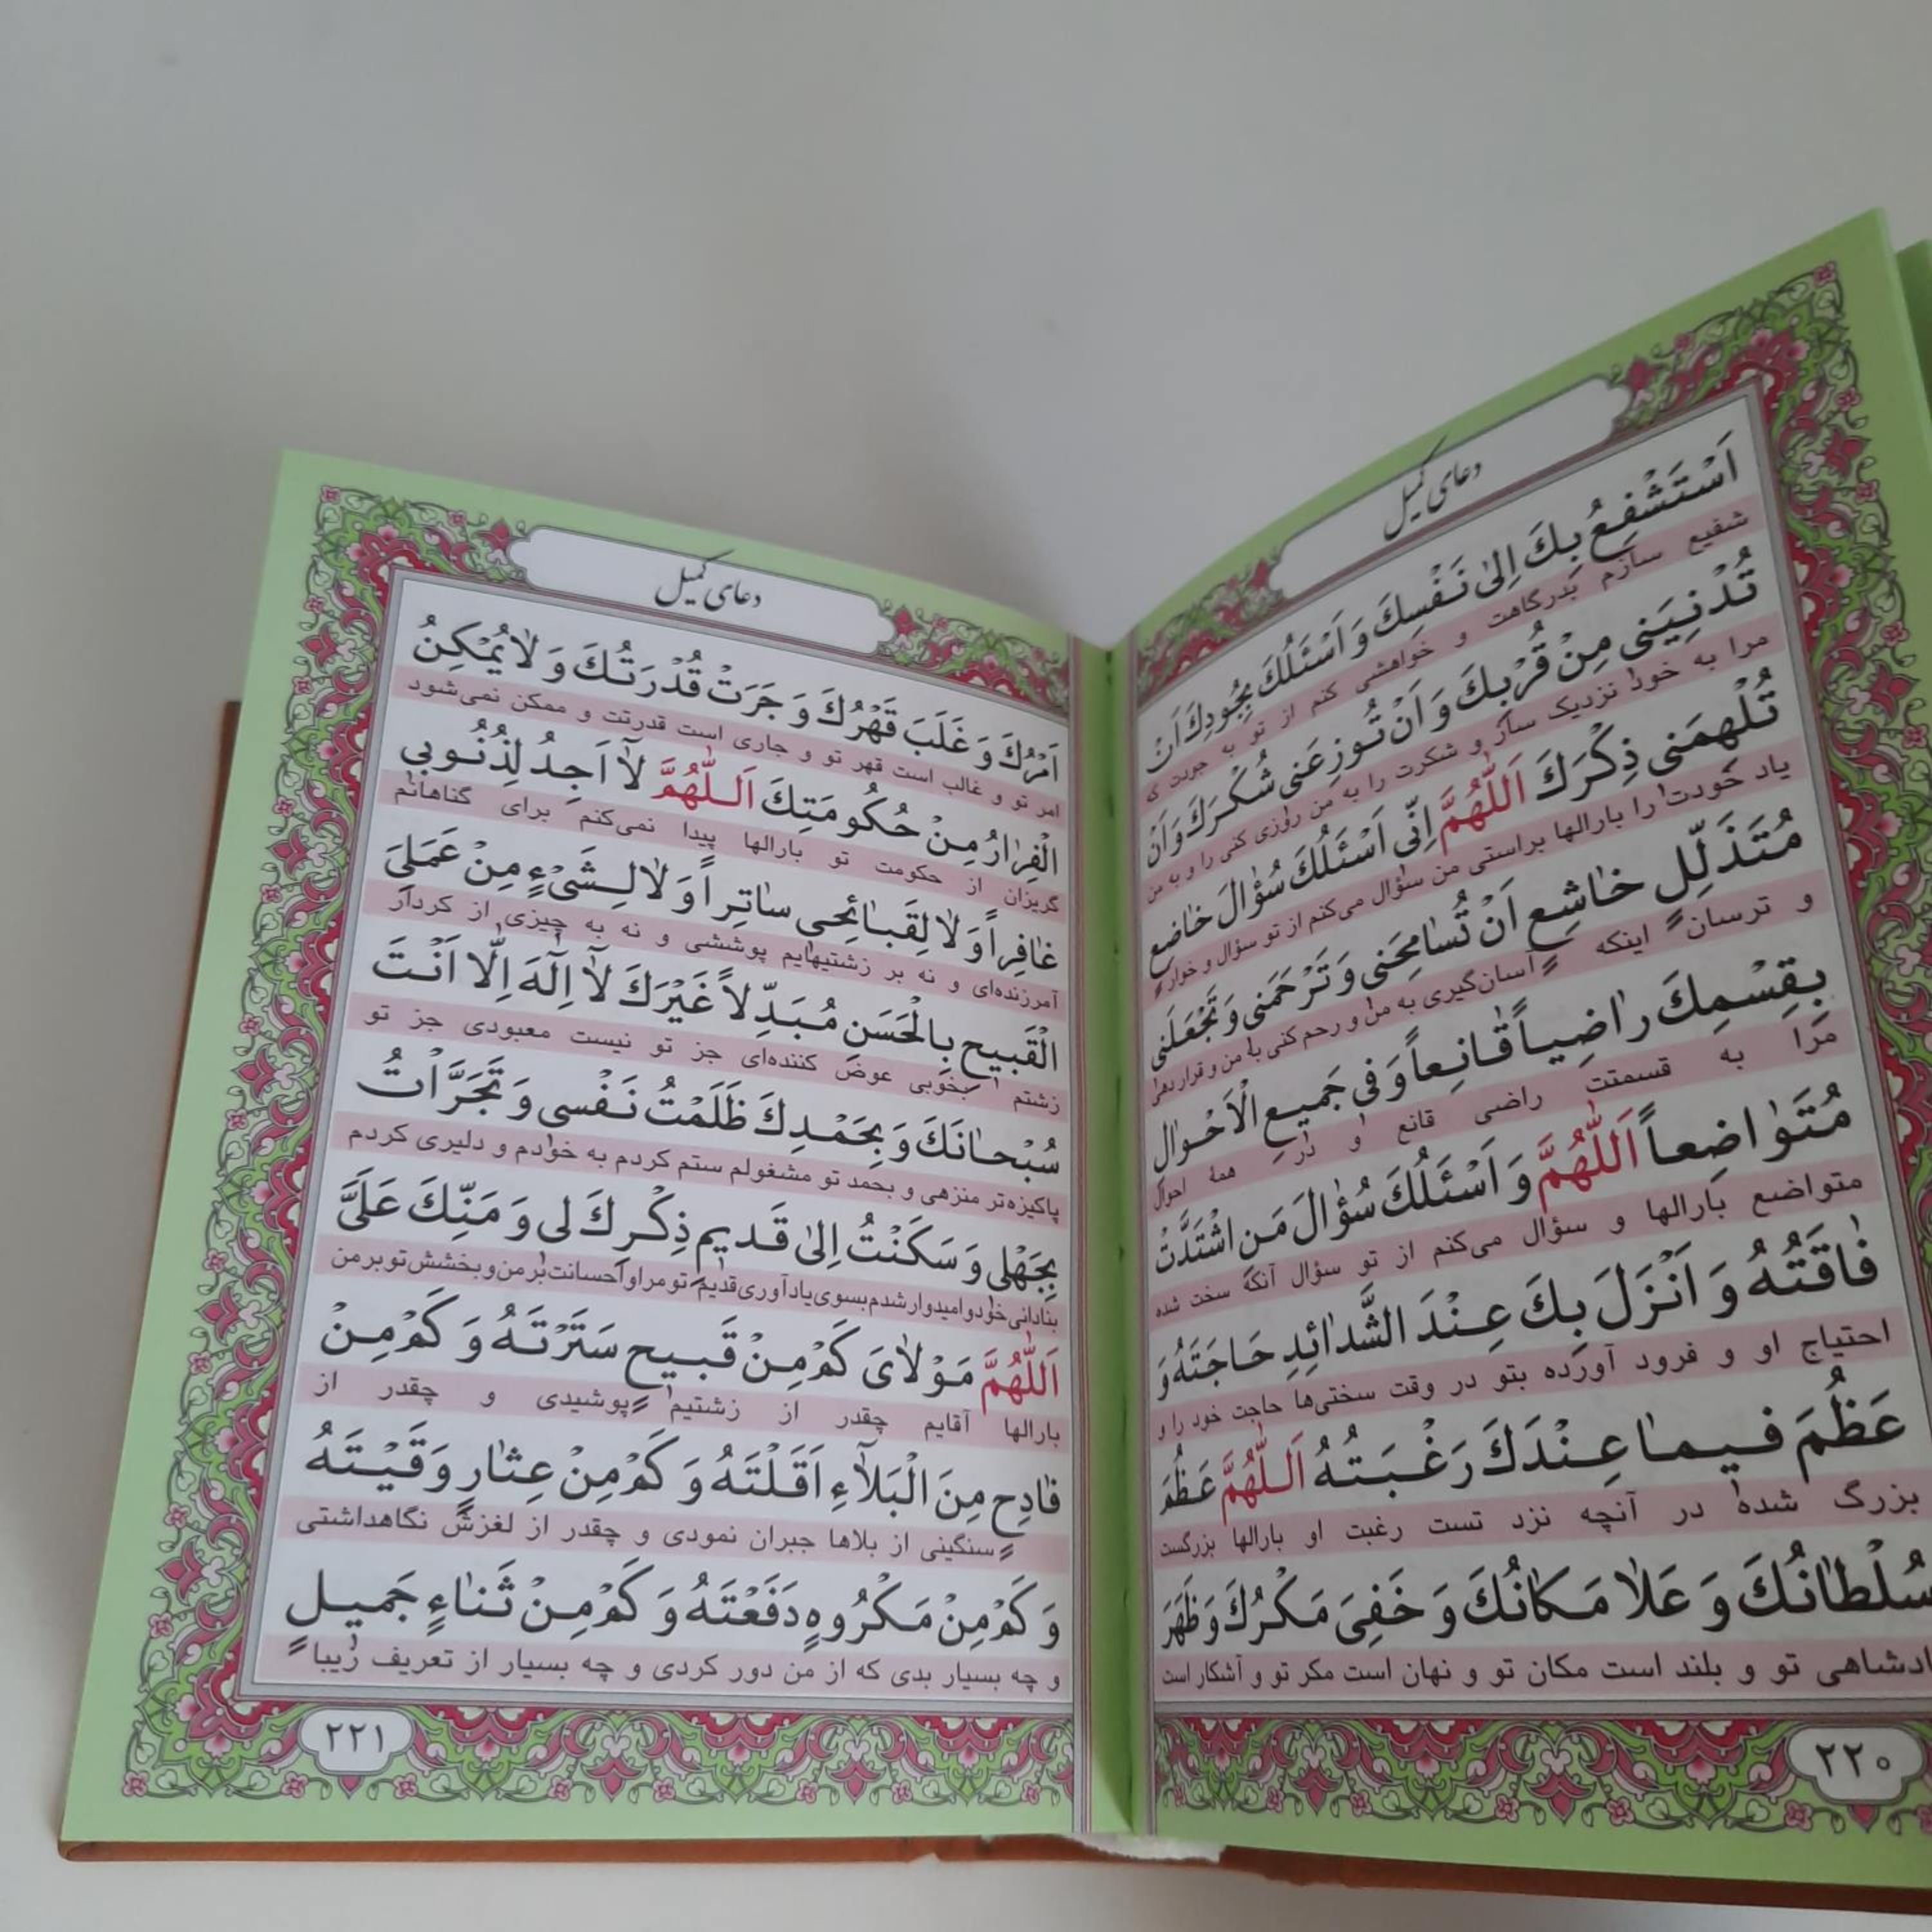 دعای کمیل
اَسْتَشْفِعُ بِكَ اِلىٰ نَفْسِكَ وَ اَسْئَلُكَ بِجُودِكَ اَنْ
شفیع سازم بدرگاهت و خواهشی کنم از تو به جودت که
تُدْنِیَنی مِنْ قُرْبِكَ وَ اَنْ تُوزِعَنی شُكْرَكَ وَ اَنْ
مرا به خود نزدیک ساز و شکرت را به من روزی کنی را و به من
تُلْهِمَنی ذِكْرَكَ اَللّٰهُمَّ اِنّی اَسْئَلُكَ سُؤٰالَ خٰاضِعٍ
یاد خودت را بارالها براستی من سؤال می‌کنم از تو سؤال و خوار
مُتَذَلِّلٍ خٰاشِعٍ اَنْ تُسٰامِحَنی وَ تَرْحَمَنی وَ تَجْعَلَنی
و ترسان اینکه آسان‌گیری به من و رحم کنی با من و قرار دهی
بِقِسْمِكَ رٰاضِیاً قٰانِعاً وَ فی جَمیعِ الْاَحْوٰالِ
مرا به قسمتت راضی قانع و در همۀ احوال
مُتَوٰاضِعاً اَللّٰهُمَّ وَ اَسْئَلُكَ سُؤٰالَ مَنِ اشْتَدَّتْ
متواضع بارالها و سؤال می‌کنم از تو سؤال آنکه سخت شده
فٰاقَتُهُ وَ اَنْزَلَ بِكَ عِنْدَ الشَّدٰائِدِ حٰاجَتَهُ وَ
احتیاج او و فرود آورده بتو در وقت سختی‌ها حاجت خود را و
عَظُمَ فیمٰا عِنْدَكَ رَغْبَتُهُ اَللّٰهُمَّ عَظُمَ
بزرگ شده در آنچه نزد تست رغبت او بارالها بزرگست
سُلْطٰانُكَ وَ عَلٰا مَكٰانُكَ وَ خَفِیَ مَكْرُكَ وَ ظَهَرَ
ادشاهی تو و بلند است مکان تو و نهان است مکر تو و آشکار است
۲۲۰
دعای کمیل
اَمْرُكَ وَ غَلَبَ قَهْرُكَ وَ جَرَتْ قُدْرَتُكَ وَ لٰا یُمْكِنُ
امر تو و غالب است قهر تو و جاری است قدرتت و ممکن نمی‌شود
الْفِرٰارُ مِنْ حُكُومَتِكَ اَللّٰهُمَّ لٰا اَجِدُ لِذُنُوبی
گریزان از حکومت تو بارالها پیدا نمی‌کنم برای گناهانم
غٰافِراً وَ لٰا لِقَبٰائِحی سٰاتِراً وَ لٰا لِشَیْءٍ مِنْ عَمَلِیَ
آمرزنده‌ای و نه بر زشتیهایم پوششی و نه به چیزی از کردار
الْقَبیحِ بِالْحَسَنِ مُبَدِّلاً غَیْرَكَ لٰا اِلٰهَ اِلّٰا اَنْتَ
زشتم بخوبی عوض کننده‌ای جز تو نیست معبودی جز تو
سُبْحٰانَكَ وَ بِحَمْدِكَ ظَلَمْتُ نَفْسی وَ تَجَرَّاْتُ
پاکیزه‌تر منزهی و بحمد تو مشغولم ستم کردم به خودم و دلیری کردم
بِجَهْلی وَ سَكَنْتُ اِلىٰ قَدیمِ ذِكْرِكَ لی وَ مَنِّكَ عَلَیَّ
بنادانی خود و امیدوار شدم بسوی یادآوری قدیم تو مرا و احسانت بر من و بخشش تو بر من
اَللّٰهُمَّ مَوْلٰایَ كَمْ مِنْ قَبیحٍ سَتَرْتَهُ وَ كَمْ مِنْ
بارالها آقایم چقدر از زشتیم پوشیدی و چقدر از
فٰادِحٍ مِنَ الْبَلٰاءِ اَقَلْتَهُ وَ كَمْ مِنْ عِثٰارٍ وَقَیْتَهُ
سنگینی از بلاها جبران نمودی و چقدر از لغزش نگاهداشتی
وَ كَمْ مِنْ مَكْرُوهٍ دَفَعْتَهُ وَ كَمْ مِنْ ثَنٰاءٍ جَمیلٍ
و چه بسیار بدی که از من دور کردی و چه بسیار از تعریف زیبا
۲۲۱